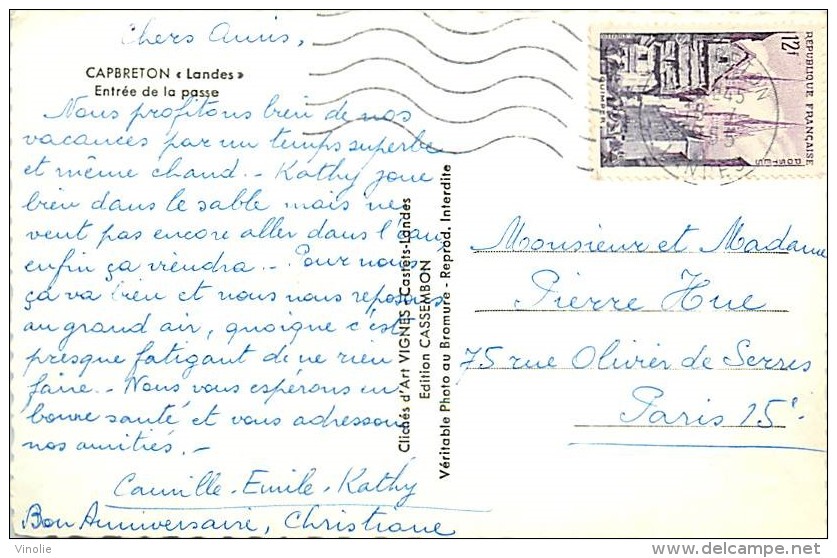 Chers Amis,
CAPBRETON « Landes »
Entrée de la passe
Nous profitons bien de nos
vacances par un temps superbe
et même chaud. - Kathy joue
bien dans le sable mais ne
veut pas encore aller dans l'eau,
enfin ça viendra. - Pour nous
ça va bien et nous nous reposons
au grand air, quoique c'est
presque fatigant de ne rien
faire. - Nous vous espérons en
bonne santé et vous adressons
nos amitiés. -
Camille - Emile - Kathy
Bon Anniversaire, Christiane
Clichés d'Art VIGNES - Castets-Landes
Edition CASSEMBON
Véritable Photo au Bromure - Reprod. Interdite
REPUBLIQUE FRANÇAISE
POSTES
12f
QUIMPER
Monsieur et Madame
Pierre Hue
75 rue Olivier de Serres
Paris 15e
Vinolie
http://www.delcampe.net